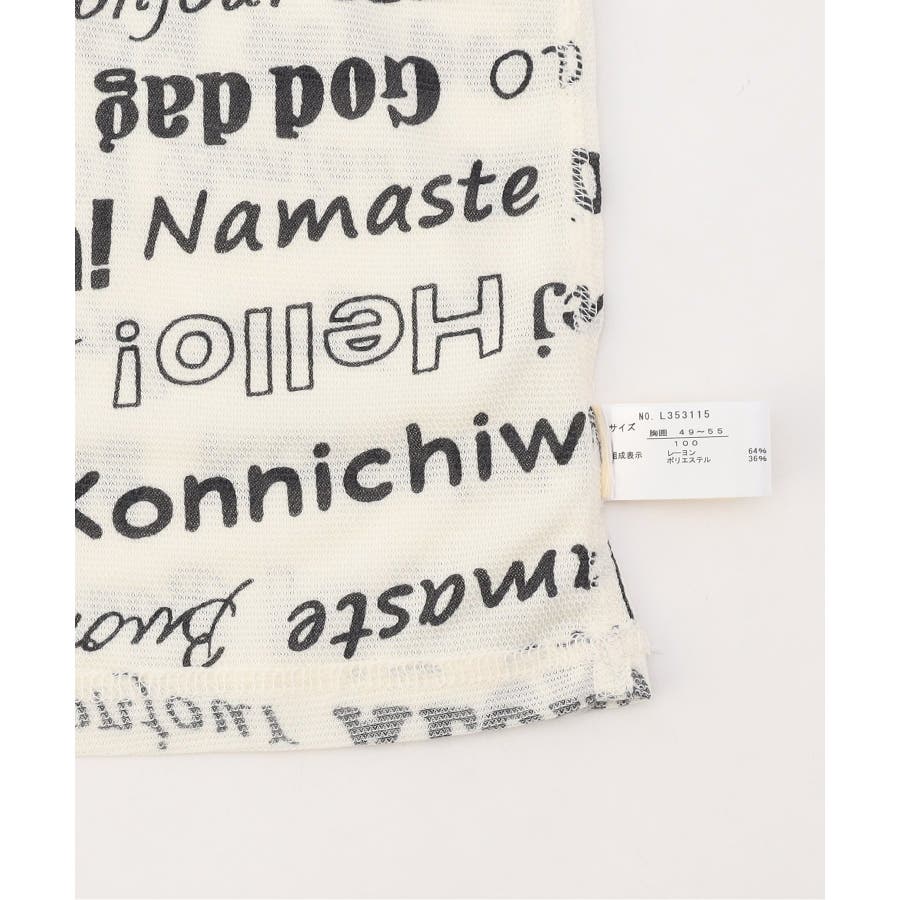 Bonjour
God dag
Namaste
Hello!
NO. L353115
サイズ
胸囲 49~55
100
組成表示
レーヨン 64%
ポリエステル 36%
Konnichiw
maste